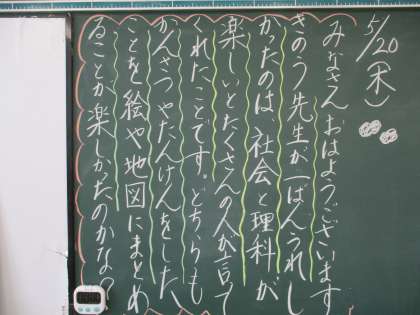 5/20(木)
みなさんおはようございます
きのう先生が一ばんうれし
かったのは、社会と理科が
楽しいとたくさんの人が言って
くれたことです。どちらも
かんさつやたんけんをした、
ことを絵や地図にまとめ
ることが楽しかったのかな?